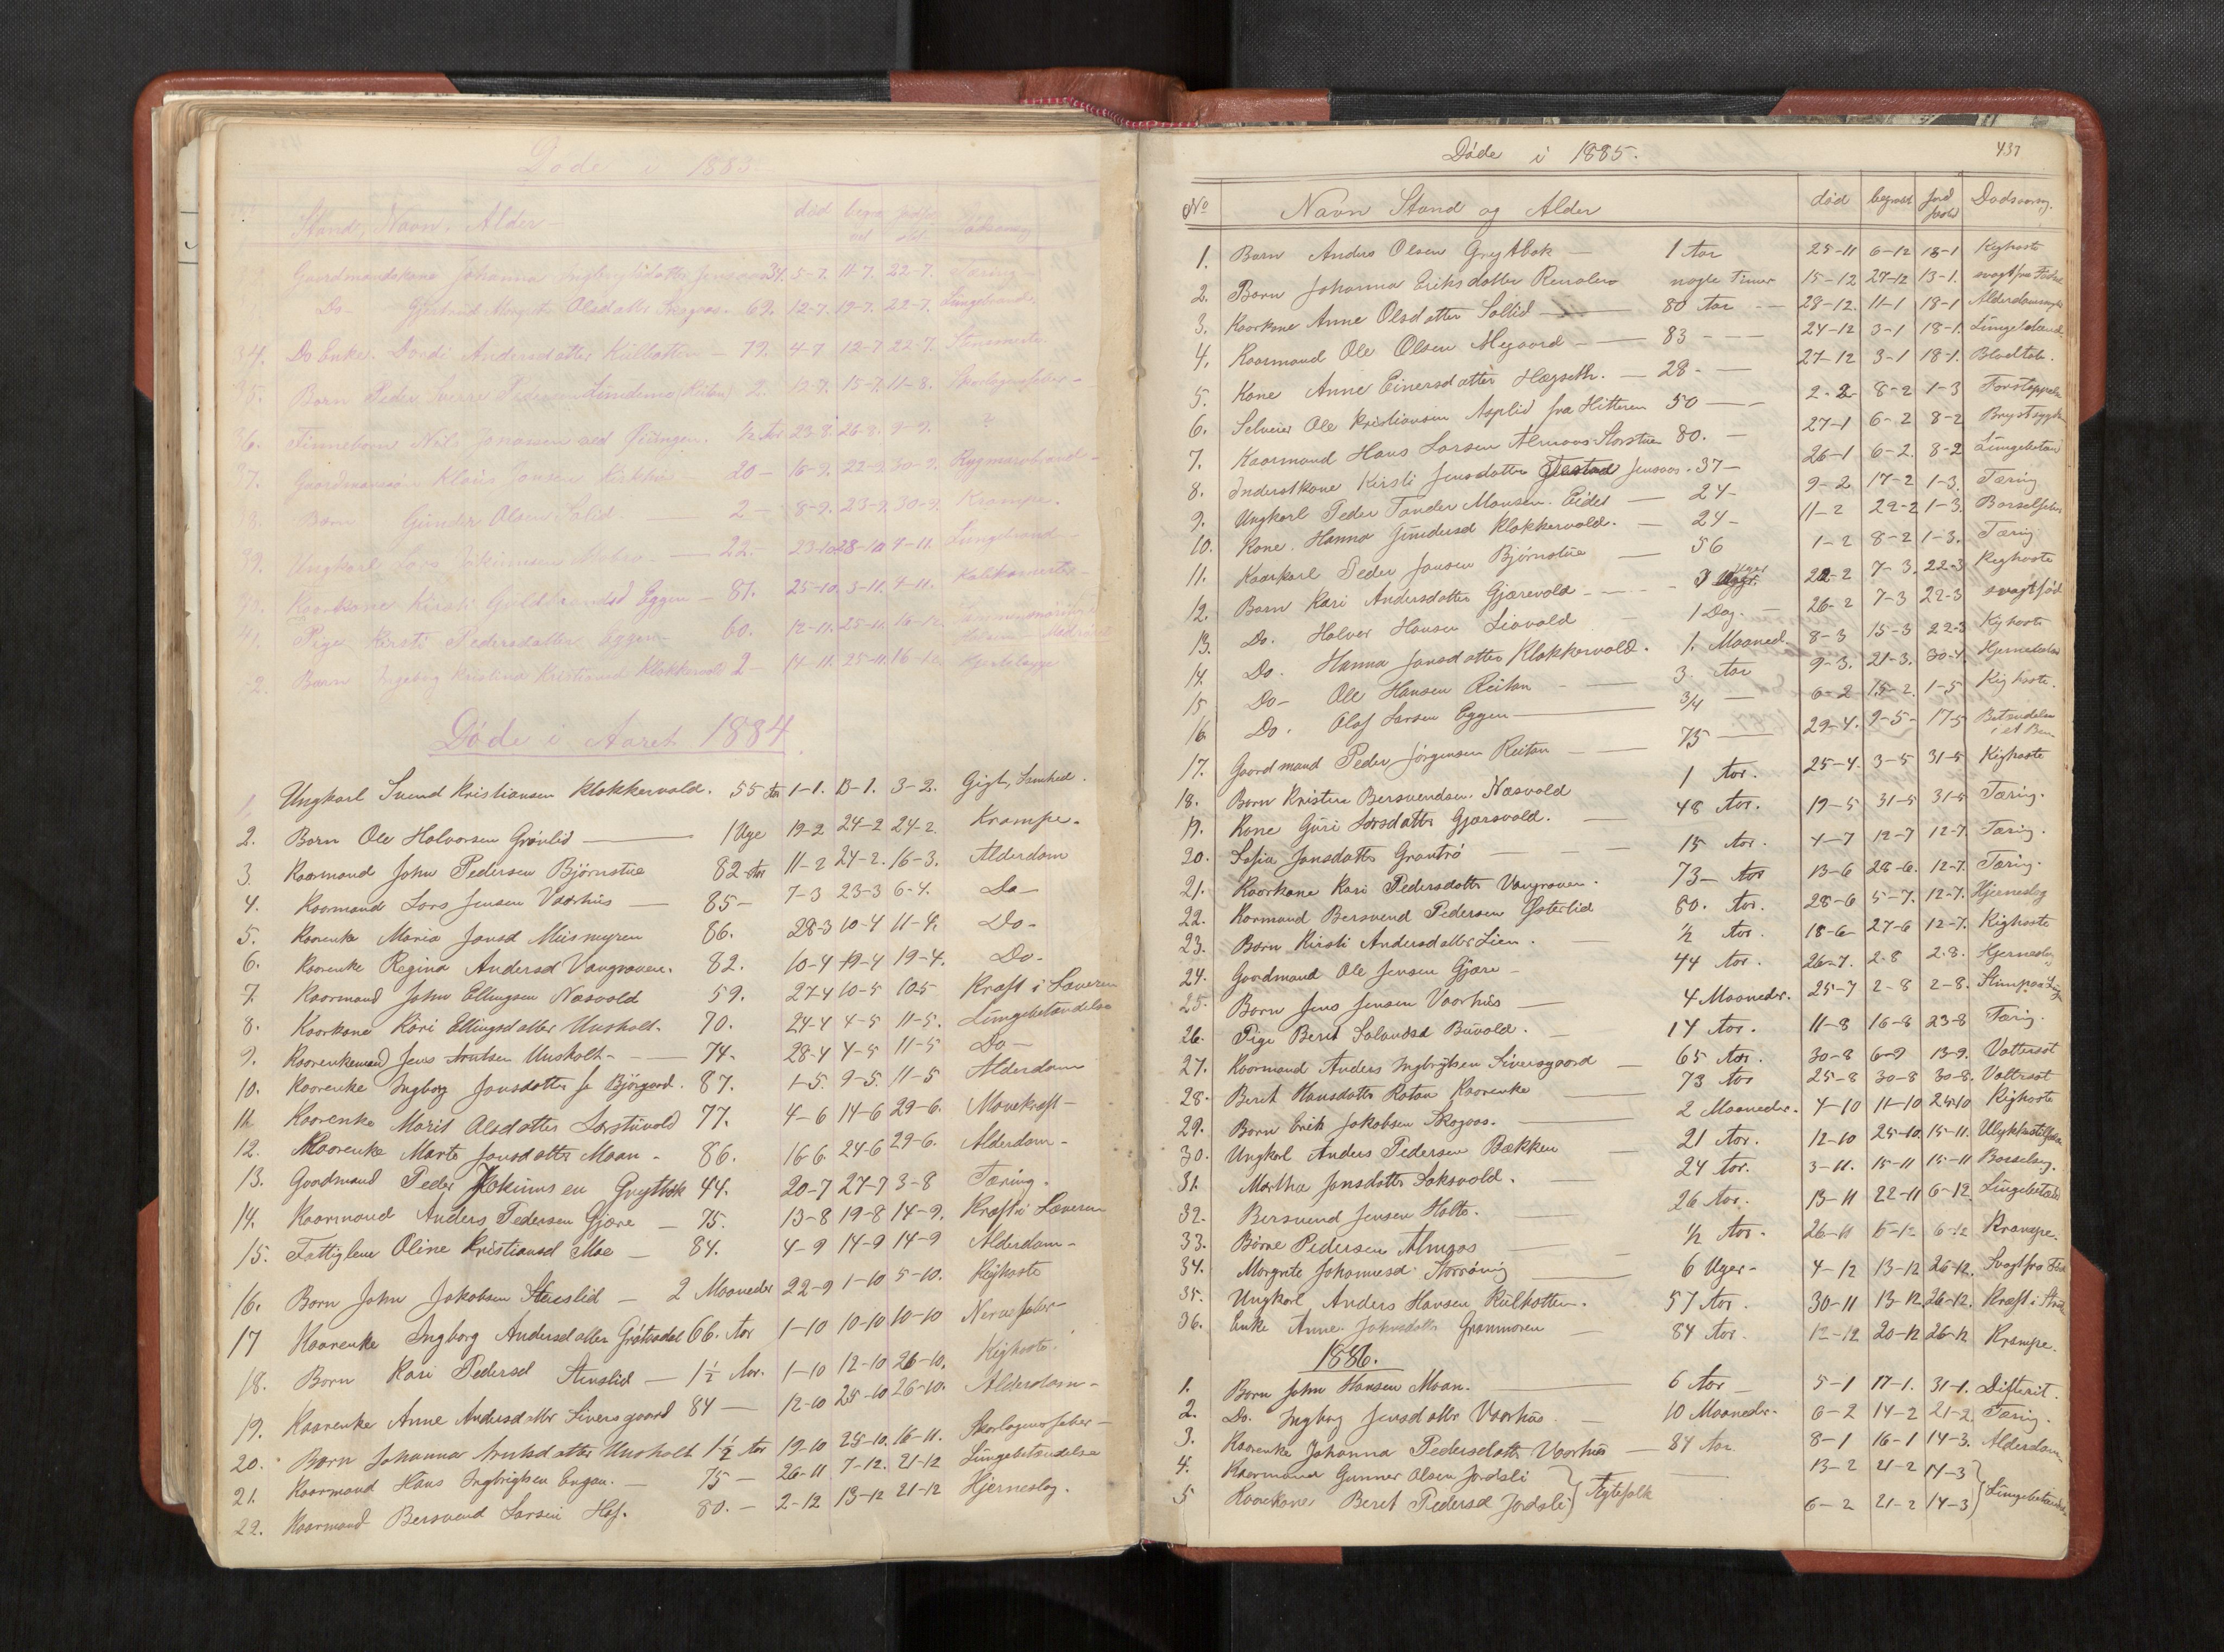 Døde i 1883.
Stand, Navn, Alder død begra vet Dødsaarsag
Gaardmandskone Johanna Ingbrigtsdatter Jensaas 34. 5-7. 11-7. 22-7. Tæring
Do- Gjertrud Margrete Olsdatter 69. 12-7. 19-7. 22-7. Lungebrand.
34. Do Enke. Dordi Andersdatter Külbotten 79. 4-7 12-7 22-7.
35. Barn Peder Sverre Pedersen Lindemo (Reitan) 2. 12-7. 15-7. 11-8. Skarlagensfeber-
36. Finnebarn Nils Jonassen ved Øiungen. ½ Aar 23-8. 26-8. 9-9. ?
37. Gaardmandssøn Klaus Jonsen 20- 16-9. 22-9. 30-9. Rygmarvbrand-
38. Barn Gunder Olsen Solid 2- 8-9. 23-9. 30-9. Krampe.
39. Ungkarl Lars 22- 23-10. 28-10 4-11. Lungebrand-
Kaarkone Kirsti Guldbrandsd Eggen - 81. 25-10. 3-11. 4-11.
41. Pige Kirsti Pedersdatter Eggen- 60. 12-11. 25-11. 16-12.
42. Barn Ingeborg Kristina Kristiansd Klokkervold 2- 14-11. 25-11. 16-12.
Døde i Aaret 1884.
1. Ungkarl Svend Kristiansen Klokkervold. 55 Aar 1-1. 13-1. 3-2. Gigt, Lamhed.
2. Barn Ole Halvorsen Grønlid 1 Uge 19-2 24-2 24-2. Krampe.
3. Kaarmand John Pedersen Bjørnstue 82 Aar 11-2 24-2. 16-3. Alderdom
4. Kaarmand Lars Jensen Vaarhus 85- 7-3 23-3 6-4. Do-
5. Kaarenke Maria Jonsd Meismyren 86. 28-3 10-4 11-4. Do-
6. Kaarenke Regina Andersd Vangraven. 82. 10-4 19-4 19-4. Do-
7. Kaarmand John Ellingsen Næsvold 59. 27-4 10-5 10-5 Kræft i Læveren
8. Kaarkone Kari Ellingsdatter Unsholt. 70. 24-4 4-5 11-5. Lungebetændelse
9. Kaarenkemand Jens Arntsen Unsholt- 74- 28-4 4-5 11-5 Do-
10. Kaarenke Ingborg Jonsdatter fr Bjørgaard. 87. 1-5. 9-5. 11-5 Alderdom
11. Kaarenke Marit Olsdatter Lorstuvold 77. 4-6 14-6 29-6. Mavekræft-
12. Kaarenke Marte Jonsdatter Moan- 86. 16-6 24-6 29-6. Alderdom-
13. Gaardmand Peder Jokumsen Grytbak 44. 20-7 27-7 3-8 Tæring.
14. Kaarmand Anders Pedersen Gjære - 75. 13-8 19-8 14-9. Kræft i Læveren
15. Fattiglem Oline Kristiansd Moe - 84. 4-9 14-9 14-9 Alderdom-
16. Barn John Jakobsen Stenslid - 2 Maaneder 22-9 1-10 5-10. Kighoste
17 Kaarenke Ingborg Andersdatter Grøtadal 66. Aar 1-10 10-10 10-10 Nervefeber-
18. Barn Kari Pedersd Stenslid - 1½ Aar. 1-10 12-10 26-10. Kighoste.
19. Kaarenke Anne Andersdatter Siversgaard 84 - 12-10 25-10 26-10. Alderdom-
20. Barn Johanna Arntsdatter Unsholt 1½ Aar 19-10 25-10. 16-11. Skarlagensfeber-
21. Kaarmand Hans Ingbrigtsen Engan. - 75 - 26-11 7-12. 21-12 Lungebetændelse
22. Kaarmand Bersvend Larsen Hof. 80. - 2-12 13-12 21-12 Hjerneslag.
Døde i 1885. 437
No Navn Stand og Alder død begravet Jord fæstet Dødsaarsag.
1. Barn Anders Olsen Grytbak - 1 Aar 25-11 6-12 18-1 Kighoste
2. Barn Johanna Eriksdatter Renolen nogle Timer 15-12 27-12 13-1. svagt fra Fødsel
3. Kaarkone Anne Olsdatter Solid - 80 Aar 28-12. 11-1 18-1 Alderdomssyge
4. Kaarmand Ole Olsen Aegaard - 83 - 24-12 3-1 18-1. Lungebetænd.
5. Kone Anne Einersdatter Hægseth. - 28 - 27-12 3-1 18-1. Blodtab.
6. Selveier Ole Kristiansen Asplid fra Hitteren 50 - 2-2 8-2 1-3 Forstoppelse
7. Kaarmand Hans Larsen Almaas Storstuen 80. - 27-1 6-2 8-2 Brystsyge
8. Inderstkone Kirsti Jensdatter Jensaas. 37- 26-1 6-2. 8-2 Lungebetæn
9. Ungkarl Peder Tander Monsen. Eidet - 24- 9-2 17-2 1-3. Tæring
10. Kone. Hanna Gundersd Klokkervold. - 24- 11-2 22-2 1-3. Barselfeber
11. Kaarkarl Peder Jonsen Bjørnstue - 56 1-2 8-2 1-3. Tæring
12. Barn Kari Andersdatter Gjærevold - 3 Uger 22-2 7-3. 22-3 Kighoste
13. Do. Halvor Hansen Liavold - 1 Dag. - 26-2 7-3 22-3 svagtfød
14. Do. Hanna Jonsdatter Klokkervold. 1. Maaned. 8-3 15-3 22-3 Kighoste
15 Do- Ole Hansen Reitan - 3. Aar 9-3. 21-3. 30-4. Hjernebetæn
16. Do. Olaf Larsen Eggen 3/4 - 6-2 15-2. 1-5 Kighoste.
17. Gaardmand Peder Jørgensen Reitan - 75 29-4. 9-5- 17-5 Betændelse i et Ben
18. Barn Kristen Bersvendsen. Næsvold 1 Aar. 25-4. 3-5 31-5 Kighoste
19. Kone Guri Larsdatter Gjærsvold. 48 Aar. 19-5 31-5 31-5 Tæring.
20. Sofia Jonsdatter Grantrø - 15 Aar. 4-7 12-7 12-7. Tæring.
21. Kaarkone Kari Pedersdatter Vangraven. 73- Aar 13-6 28-6. 12-7. Tæring.
22. Karmand Bersvend Pedersen Østerlid 80. Aar. 28-6 5-7. 12-7. Hjerneslag
23. Barn Kirsti Andersdatter Lien. - ½ Aar. 18-6- 27-6 12-7. Kighoste
24. Gaardmand Ole Jensen Gjære - 44 Aar. 26-7. 2-8 2-8. Hjerneslag
25. Barn Jens Jensen Vaarhus - 4 Maaneder. 25-7 2-8 2-8.
26. Pige Beret Salamdsd Buvold. - 14 Aar. 11-8 16-8 23-8 Tæring.
27. Kaarmand Anders Ingbrigtsen Siversgaard - 65 Aar. 30-8 6-9 13-9. Vattersot
28. Beret Hansdatter Rotan Kaarenke 73 Aar 25-8 30-8 30-8. Vattersot
29. Barn Erik Jakobsen Skogaas. 2 Maaneder. 4-10 11-10 25-10 Kighoste
30. Ungkarl Anders Pedersen Bækken - 21 Aar. 12-10 25-10. 15-11. Ulykkestilfælde
31. Martha Jonsdatter Loksvold. - 24 Aar. 3-11. 15-11 15-11 Barselseng.
32. Bersvend Jensen Holte. 26 Aar. 13-11 22-11 6-12 Lungebetænd
33. Børre Pedersen Almaas - ½ Aar. 26-11 6-12 6-12 Krampe.
34. Margrete Johannesd Storrøning 6 Uger- 4-12 13-12 26-12. Svagt fra Fød
35. Ungkarl Anders Hansen Külbotten. 57 Aar. 30-11 13-12. 26-12. Kræft i
36. Enke Anne Johnsdatter Granmoren - 84 Aar. 12-12 20-12 26-12 Krampe.
1886.
1. Barn John Hansen Moan. 6 Aar - 5-1 17-1. 31-1. Difterit.
2. Do. Ingborg Jensdatter Vaarhus. - 10 Maaneder. 6-2 14-2 21-2 Tæring.
3. Kaarenke Johanna Pedersdatter Vaarhus - 84 Aar 8-1 16-1 14-3. Alderdom
4. Kaarmand Gunner Olsen Jordsli } Ægtefolk 13-2 21-2 14-3 } Lungebetændelse
5 Kaarekone Beret Pedersd Jordsli } 6-2 21-2 14-3